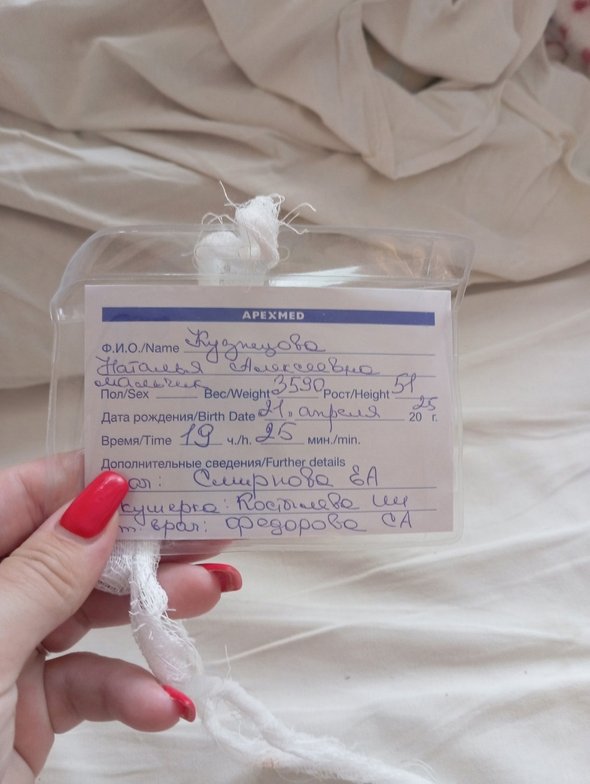 APEXMED
Ф.И.О./Name Кузнецова
Наталья Алексеевна
мальчик
Пол/Sex Вес/Weight 3590 Рост/Height 51
Дата рождения/Birth Date 21. апреля 2025 г.
Время/Time 19 ч./h. 25 мин./min.
Дополнительные сведения/Further details
Смирнова ЕА
кушерка: Костылева
врач: Федорова СА